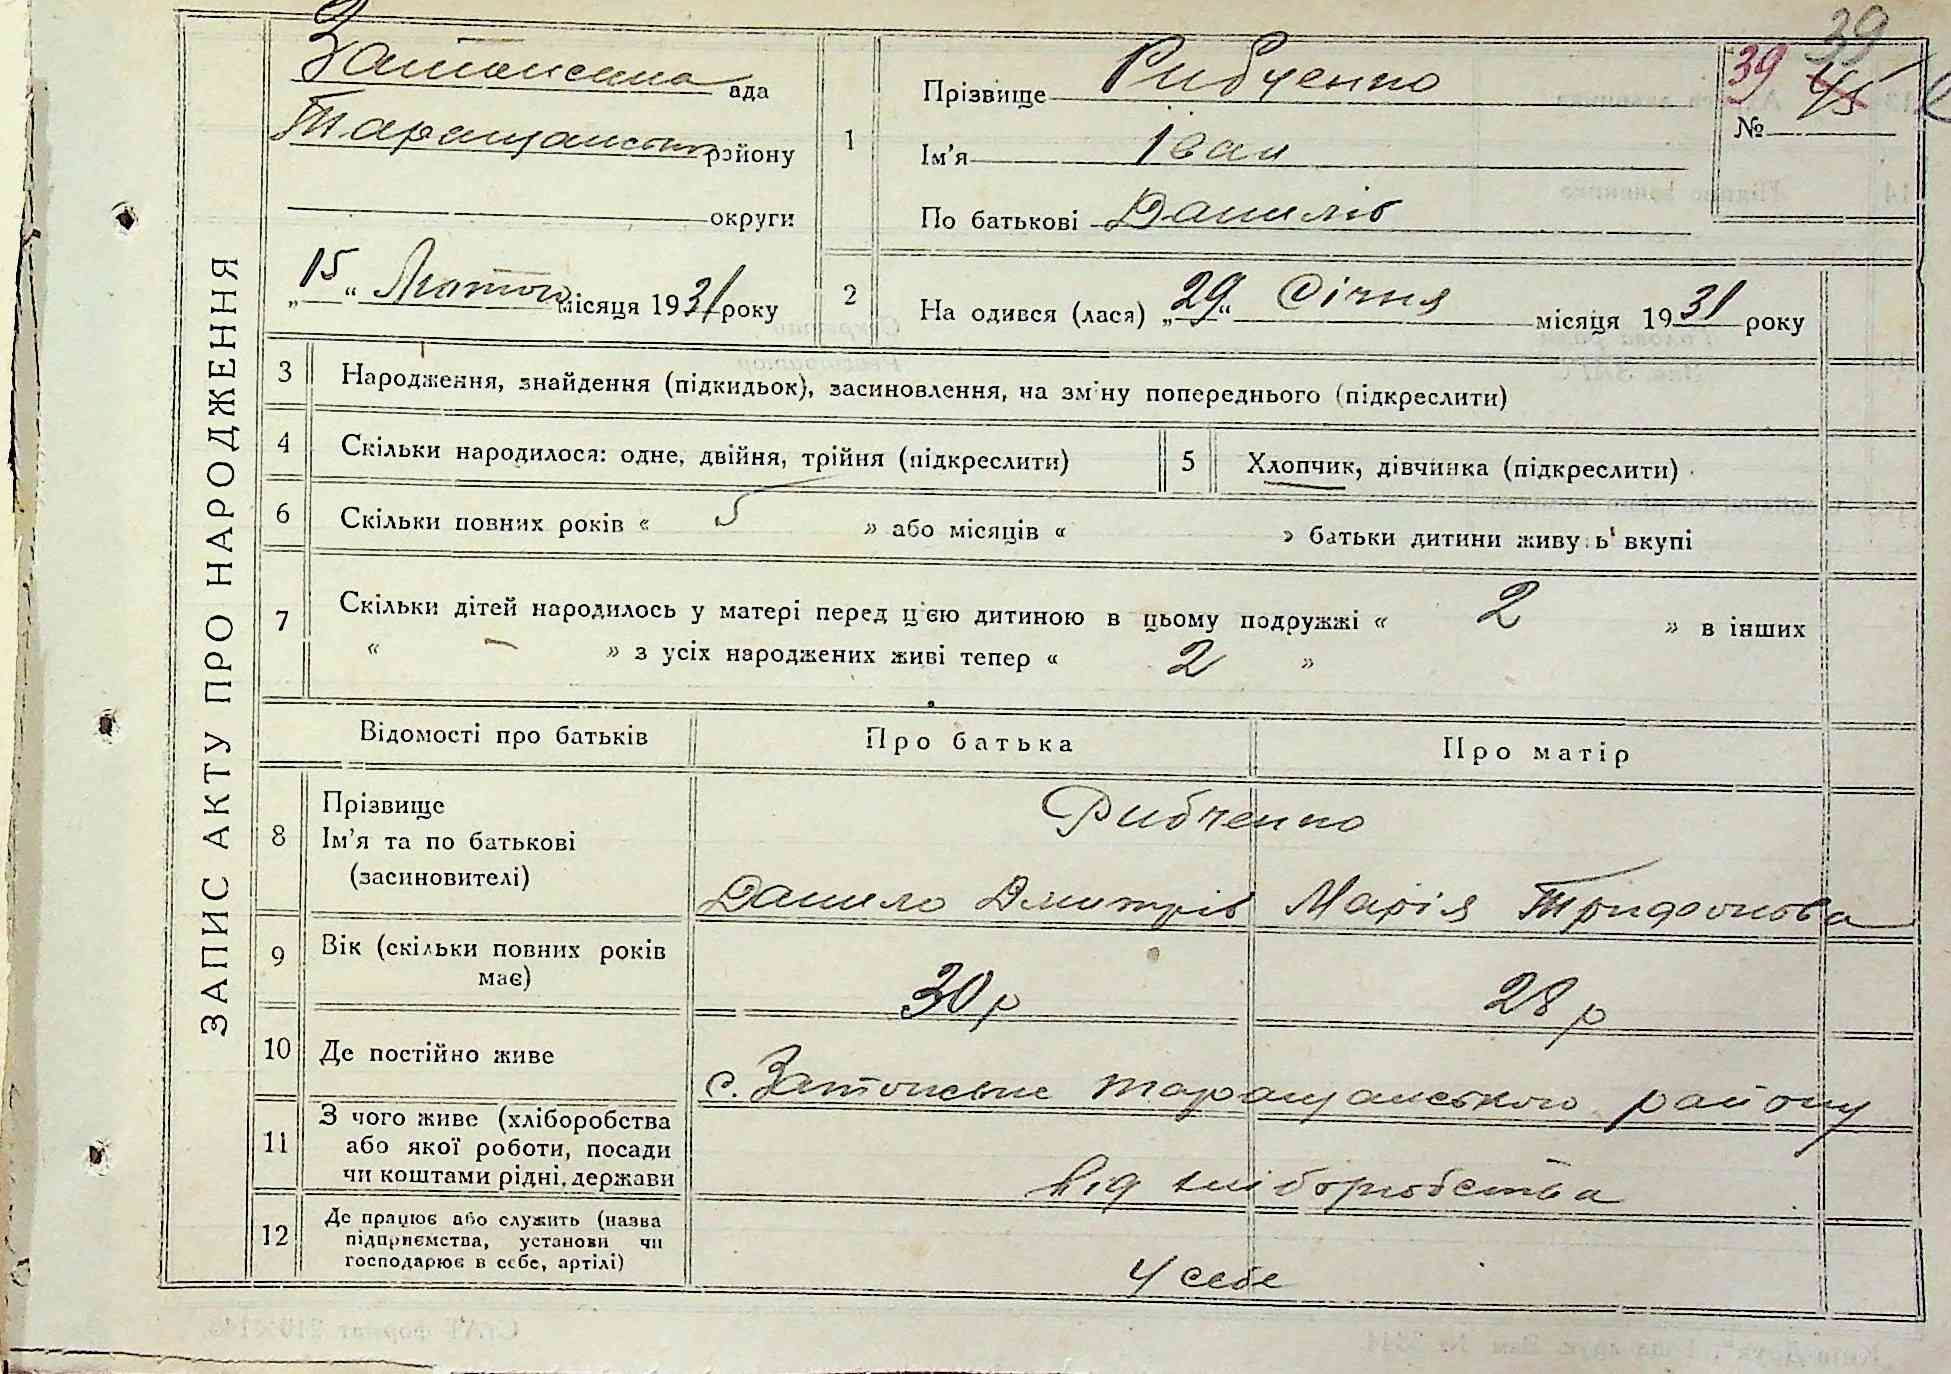 ЗАПИС АКТУ ПРО НАРОДЖЕННЯ
ада
Таращанськ району
округи
„15“ Лютого місяця 1931 року
39
39 45
№
1 Прізвище Рибченко
Ім'я Іван
По батькові Данилів
2 На одився (лася) „29“ Січня місяця 1931 року
3 Народження, знайдення (підкидьок), засиновлення, на зміну попереднього (підкреслити)
4 Скільки народилося: одне, двійня, трійня (підкреслити)
5 Хлопчик, дівчинка (підкреслити)
6 Скільки повних років « 5 » або місяців « » батьки дитини живуть вкупі
7 Скільки дітей народилось у матері перед ц'єю дитиною в цьому подружжі « 2 » в інших
« – » з усіх народжених живі тепер « 2 »
Відомості про батьків Про батька Про матір
8 Прізвище
Ім'я та по батькові
(засиновителі)
Рибченко
Данило Дмитрів Марія Трифонова
9 Вік (скільки повних років
має)
30 р 28 р
10 Де постійно живе
с. Затонське таращанського району
11 З чого живе (хліборобства
або якої роботи, посади
чи коштами рідні, держави
від хліборобства
12 Де працює або служить (назва
підприємства, установи чи
господарює в себе, артілі)
У себе